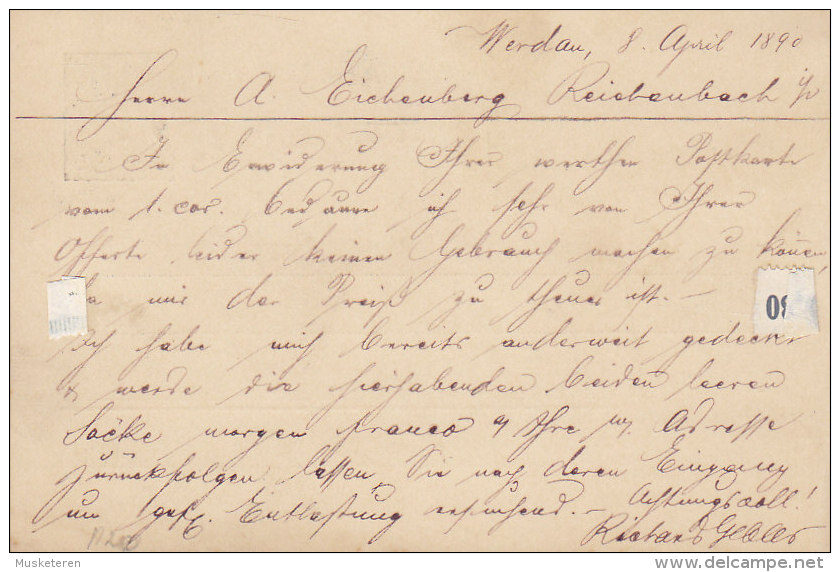 Werdau, 8. April 1890
Herrn A. Eichenberg Reichenbach i/V
In Erwiderung Ihrer werthen Postkarte
vom 1. cor. bedaure ich sehr von Ihrer
Offerte leider keinen Gebrauch machen zu können,
da mir der Preiß zu theuer ist. –
Ich habe mich bereits anderweit gedeckt
& werde die hierhabenden beiden leeren
Säcke morgen franco a/ Ihre Adresse
zurückfolgen lassen, Sie nach deren Eingang
um gefl. Entlastung ersuchend. – Achtungsvoll!
Richard
80
Musketeren
delcampe.net